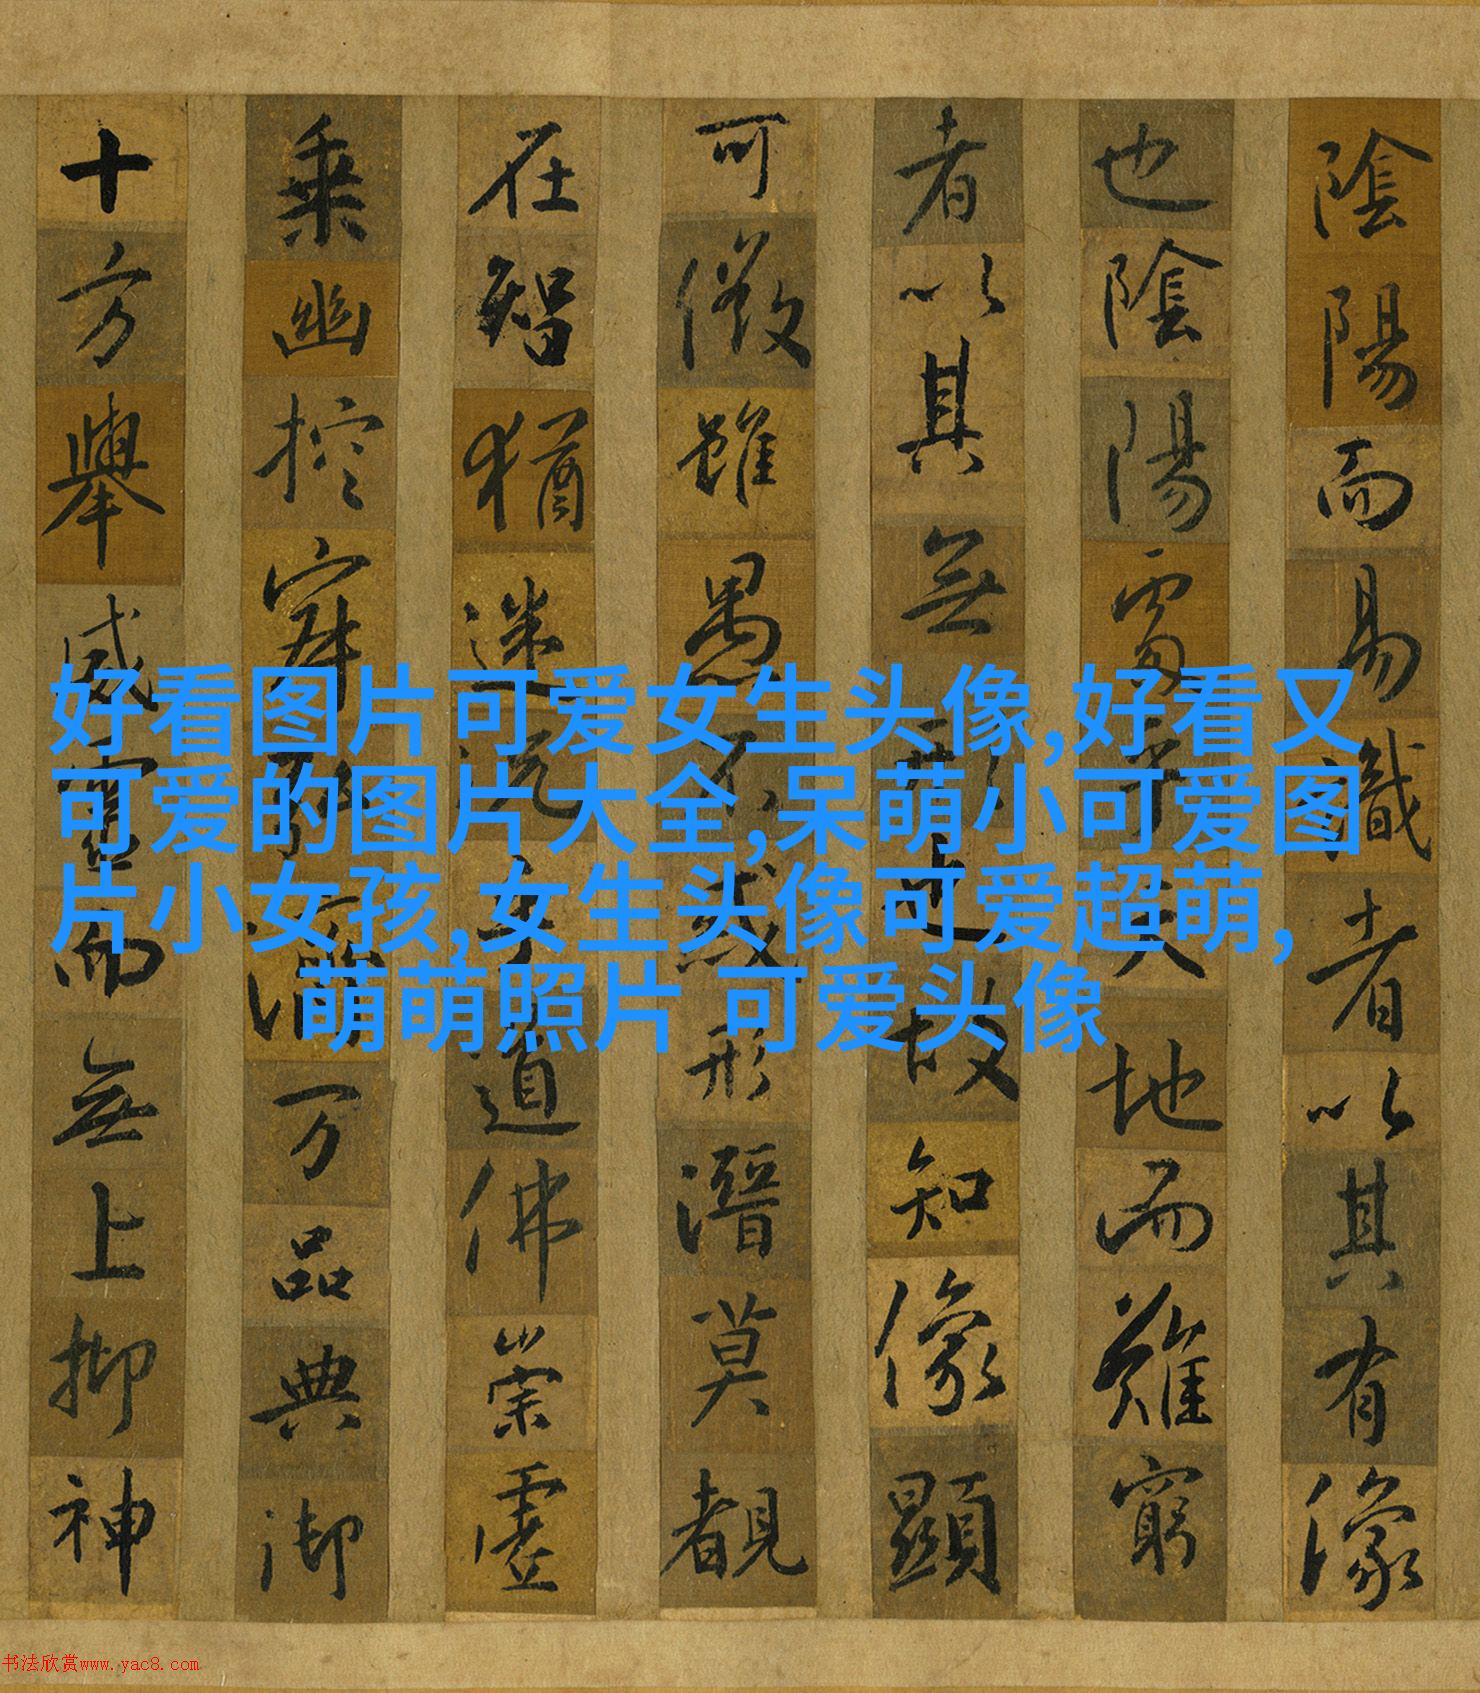 陰陽而易識者以其有像
也陰陽處乎天地而難窮
者以其無形也故知像顯
可徵雖愚不惑形潛莫覩
在智猶迷况乎道佛崇虛
乗幽控寂弘濟万品典御
十方舉威靈而無上抑神
好看图片可爱女生头像,好看又
可爱的图片大全,呆萌小可爱图
片小女孩,女生头像可爱超萌,
萌萌照片 可爱头像
书法欣赏www.yac8.com